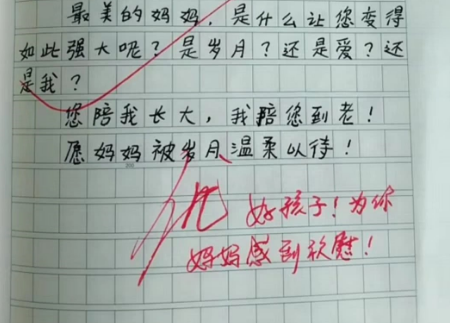 最美的妈妈，是什么让您变得
如此强大呢？是岁月？还是爱？还
是我？
您陪我长大，我陪您到老！
愿妈妈被岁月温柔以待！
优 好孩子！为你
妈妈感到欣慰！